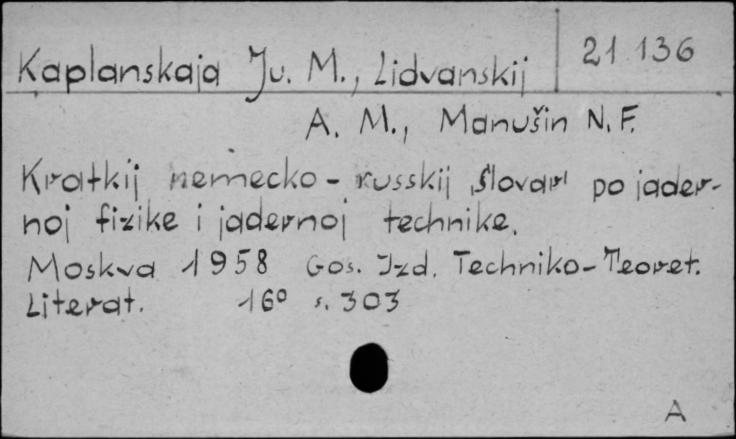 21 136
Kaplanskaja Ju. M., Lidvanskij
A. M., Manušin N. F.
Kratkij nemecko-russkij slovar' po jader-
noj fizike i jadernoj technike.
Moskva 1958 Gos. Izd. Techniko-Teoret.
Literat. 16° s. 303
A